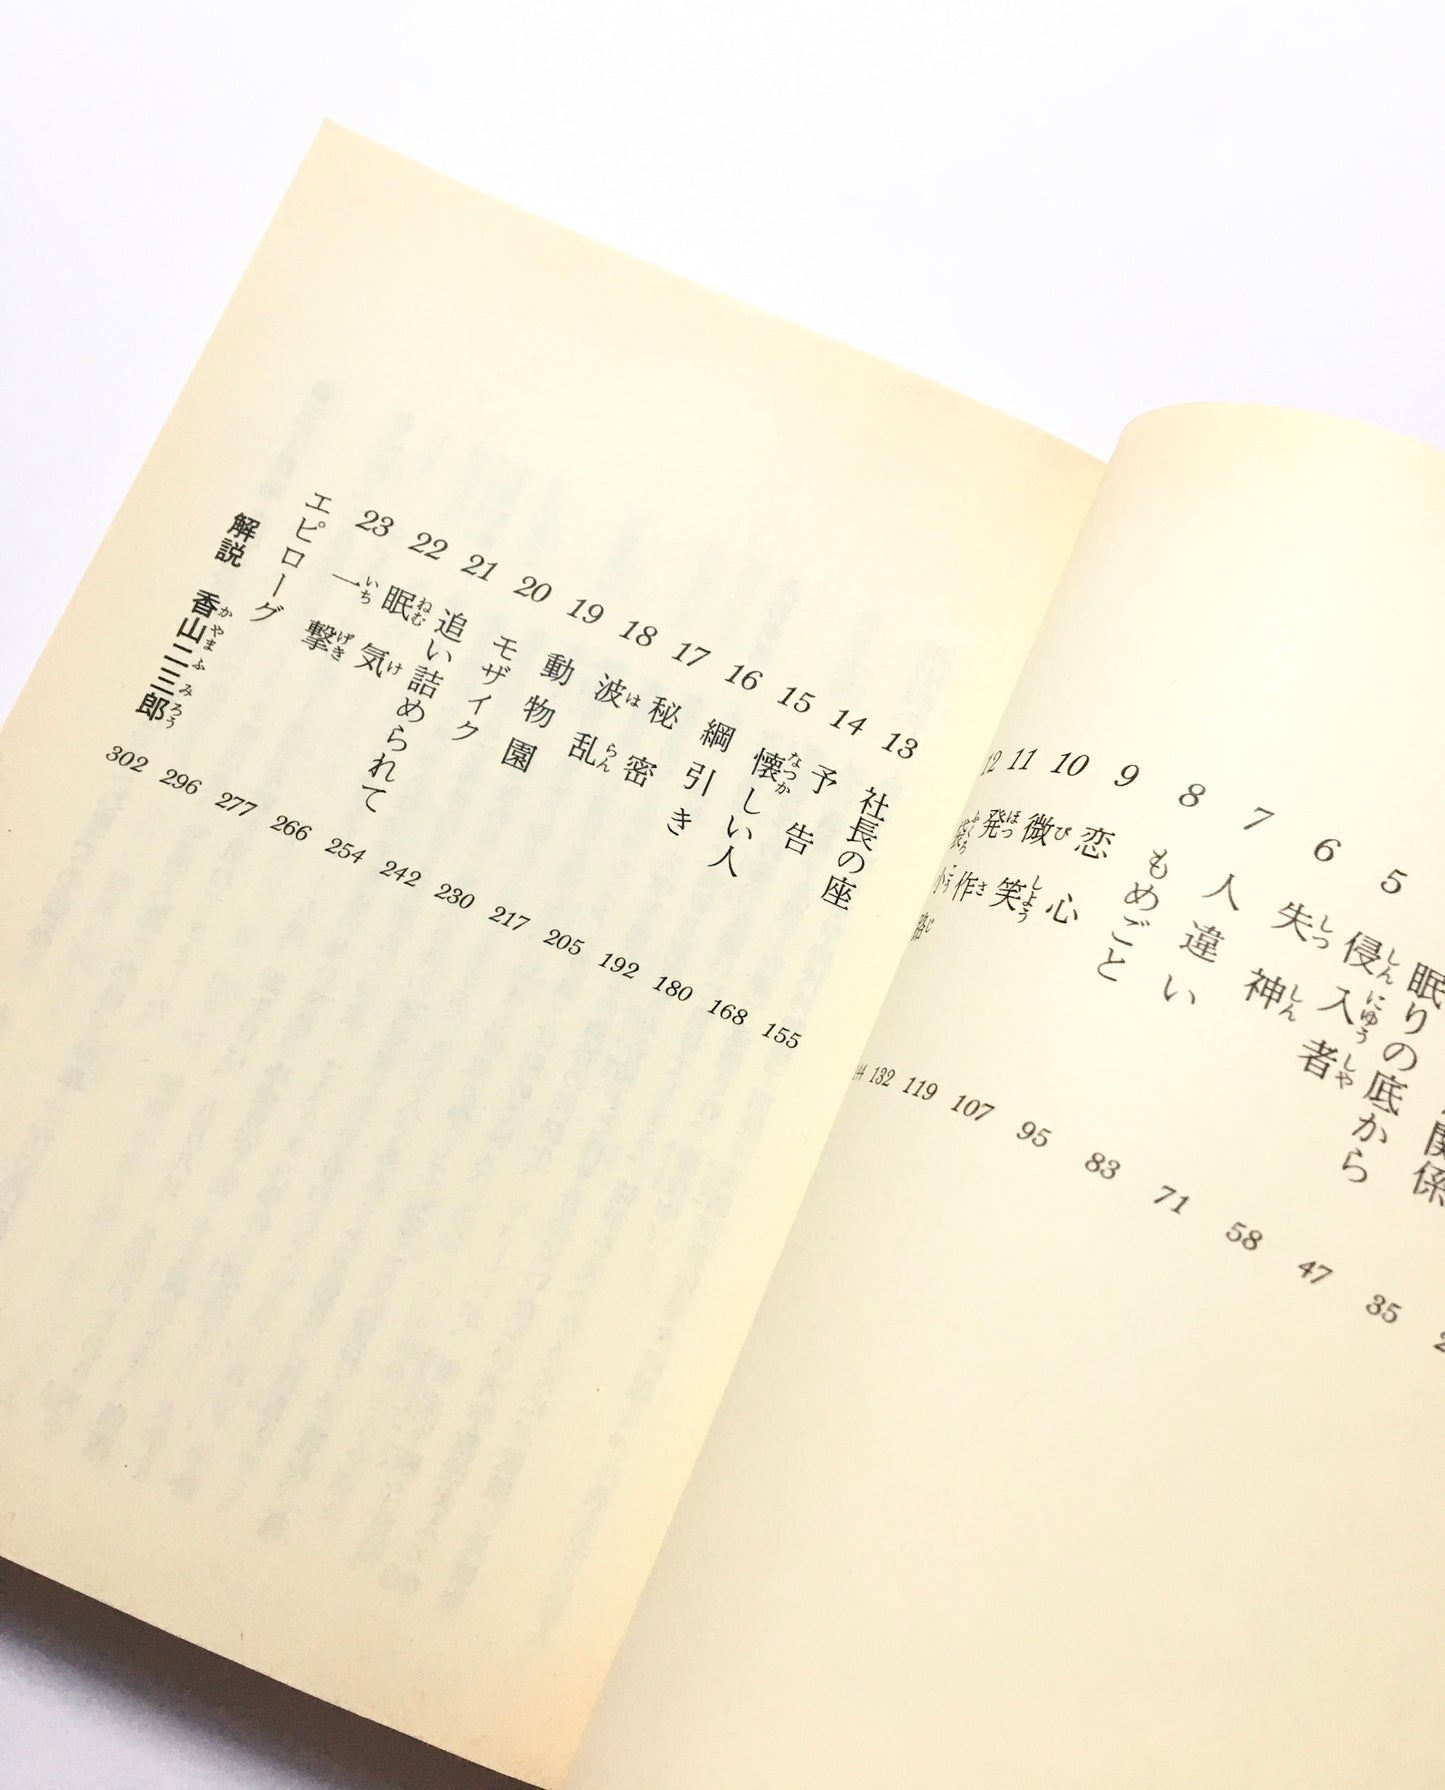 関係 35
眠りの底から 47
5 侵入者 58
6 失神 71
7 人違い 83
8 もめごと 95
9 恋心 107
10 微笑 119
11 発作 132
12 袋小路
13 社長の座 155
14 予告 168
15 懐しい人 180
16 綱引き 192
17 秘密 205
18 波乱 217
19 動物園 230
20 モザイク 242
21 追い詰められて 254
22 眠気 266
23 一撃 277
エピローグ 296
解説 香山二三郎 302